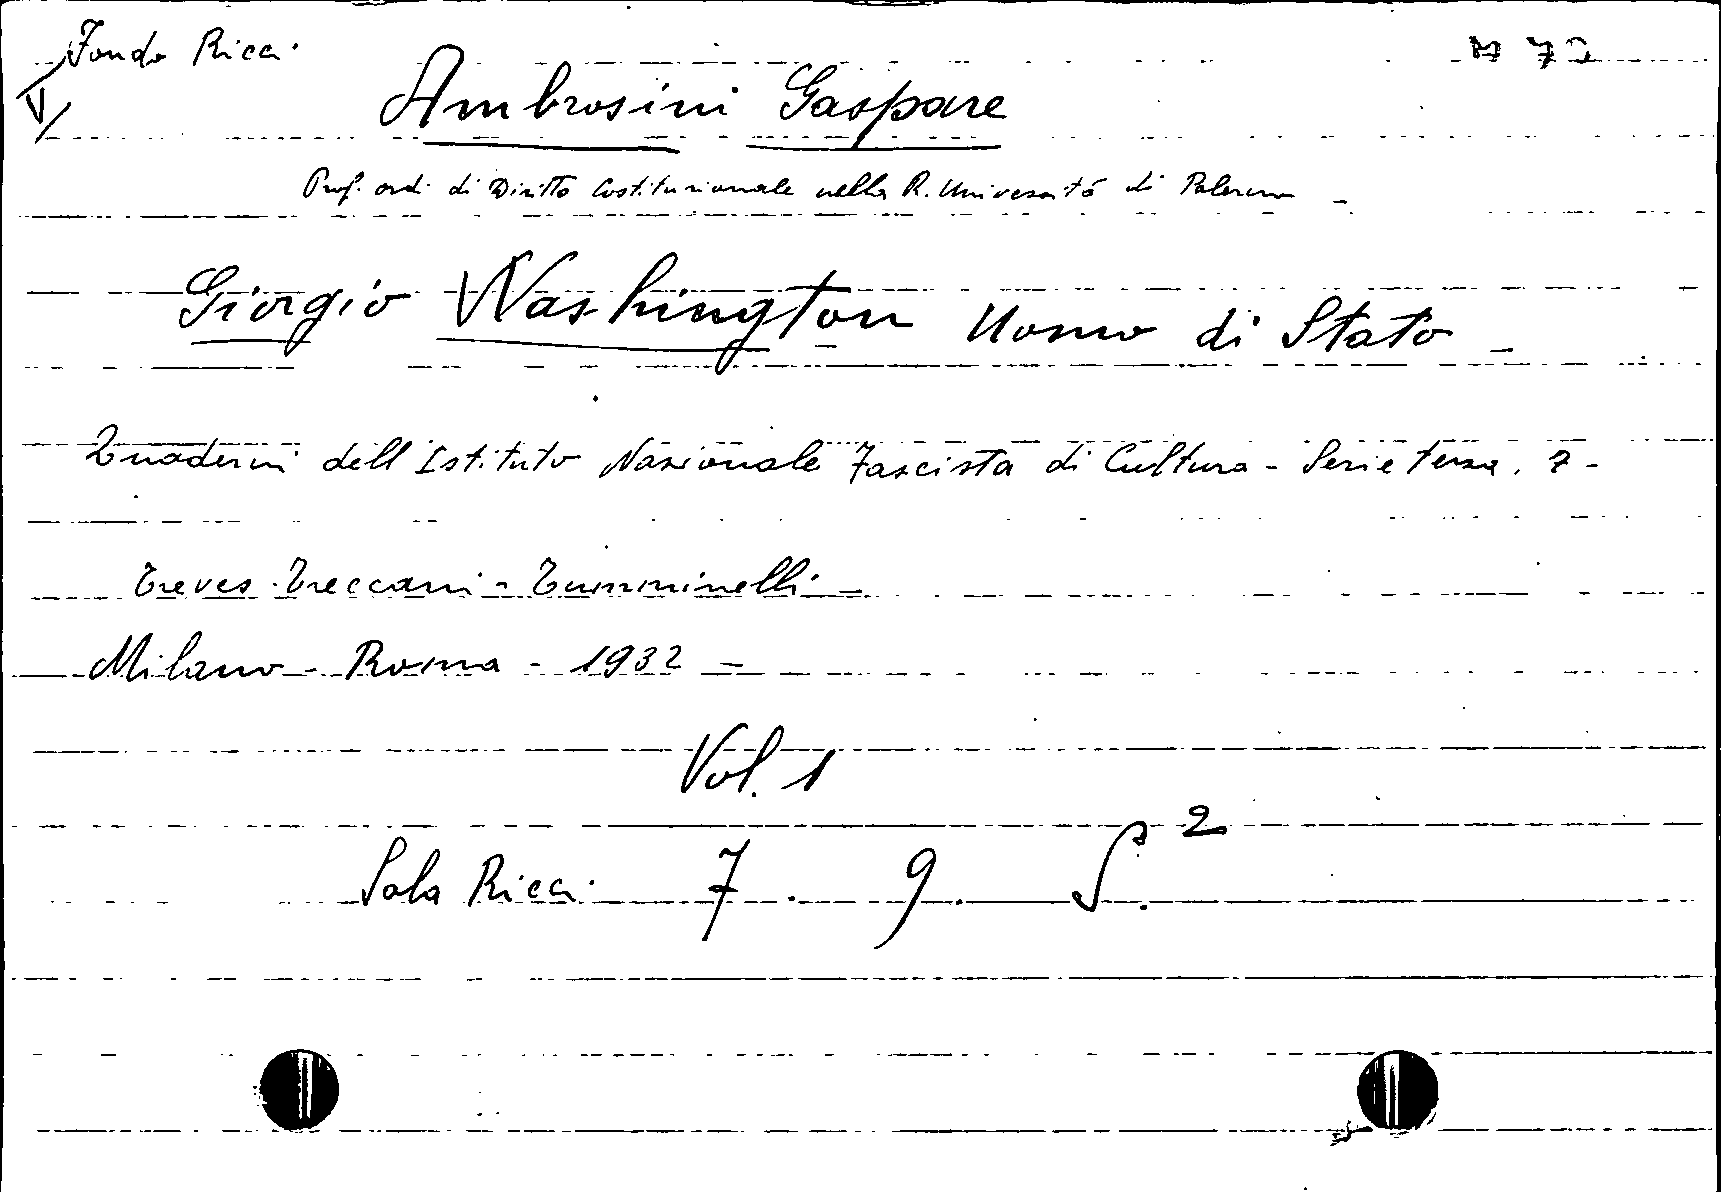 Fondo Ricci
V
Ambrosini Gaspare
Prof. ord. di Diritto Costituzionale nella R. Università di Palermo -
Giorgio Washington Uomo di Stato -
Quaderni dell'Istituto Nazionale Fascista di Cultura - Serie terza, 7 -
Treves - Treccani - Tumminelli -
Milano - Roma - 1932 -
Vol. 1
Sala Ricci 7. 9. S.2